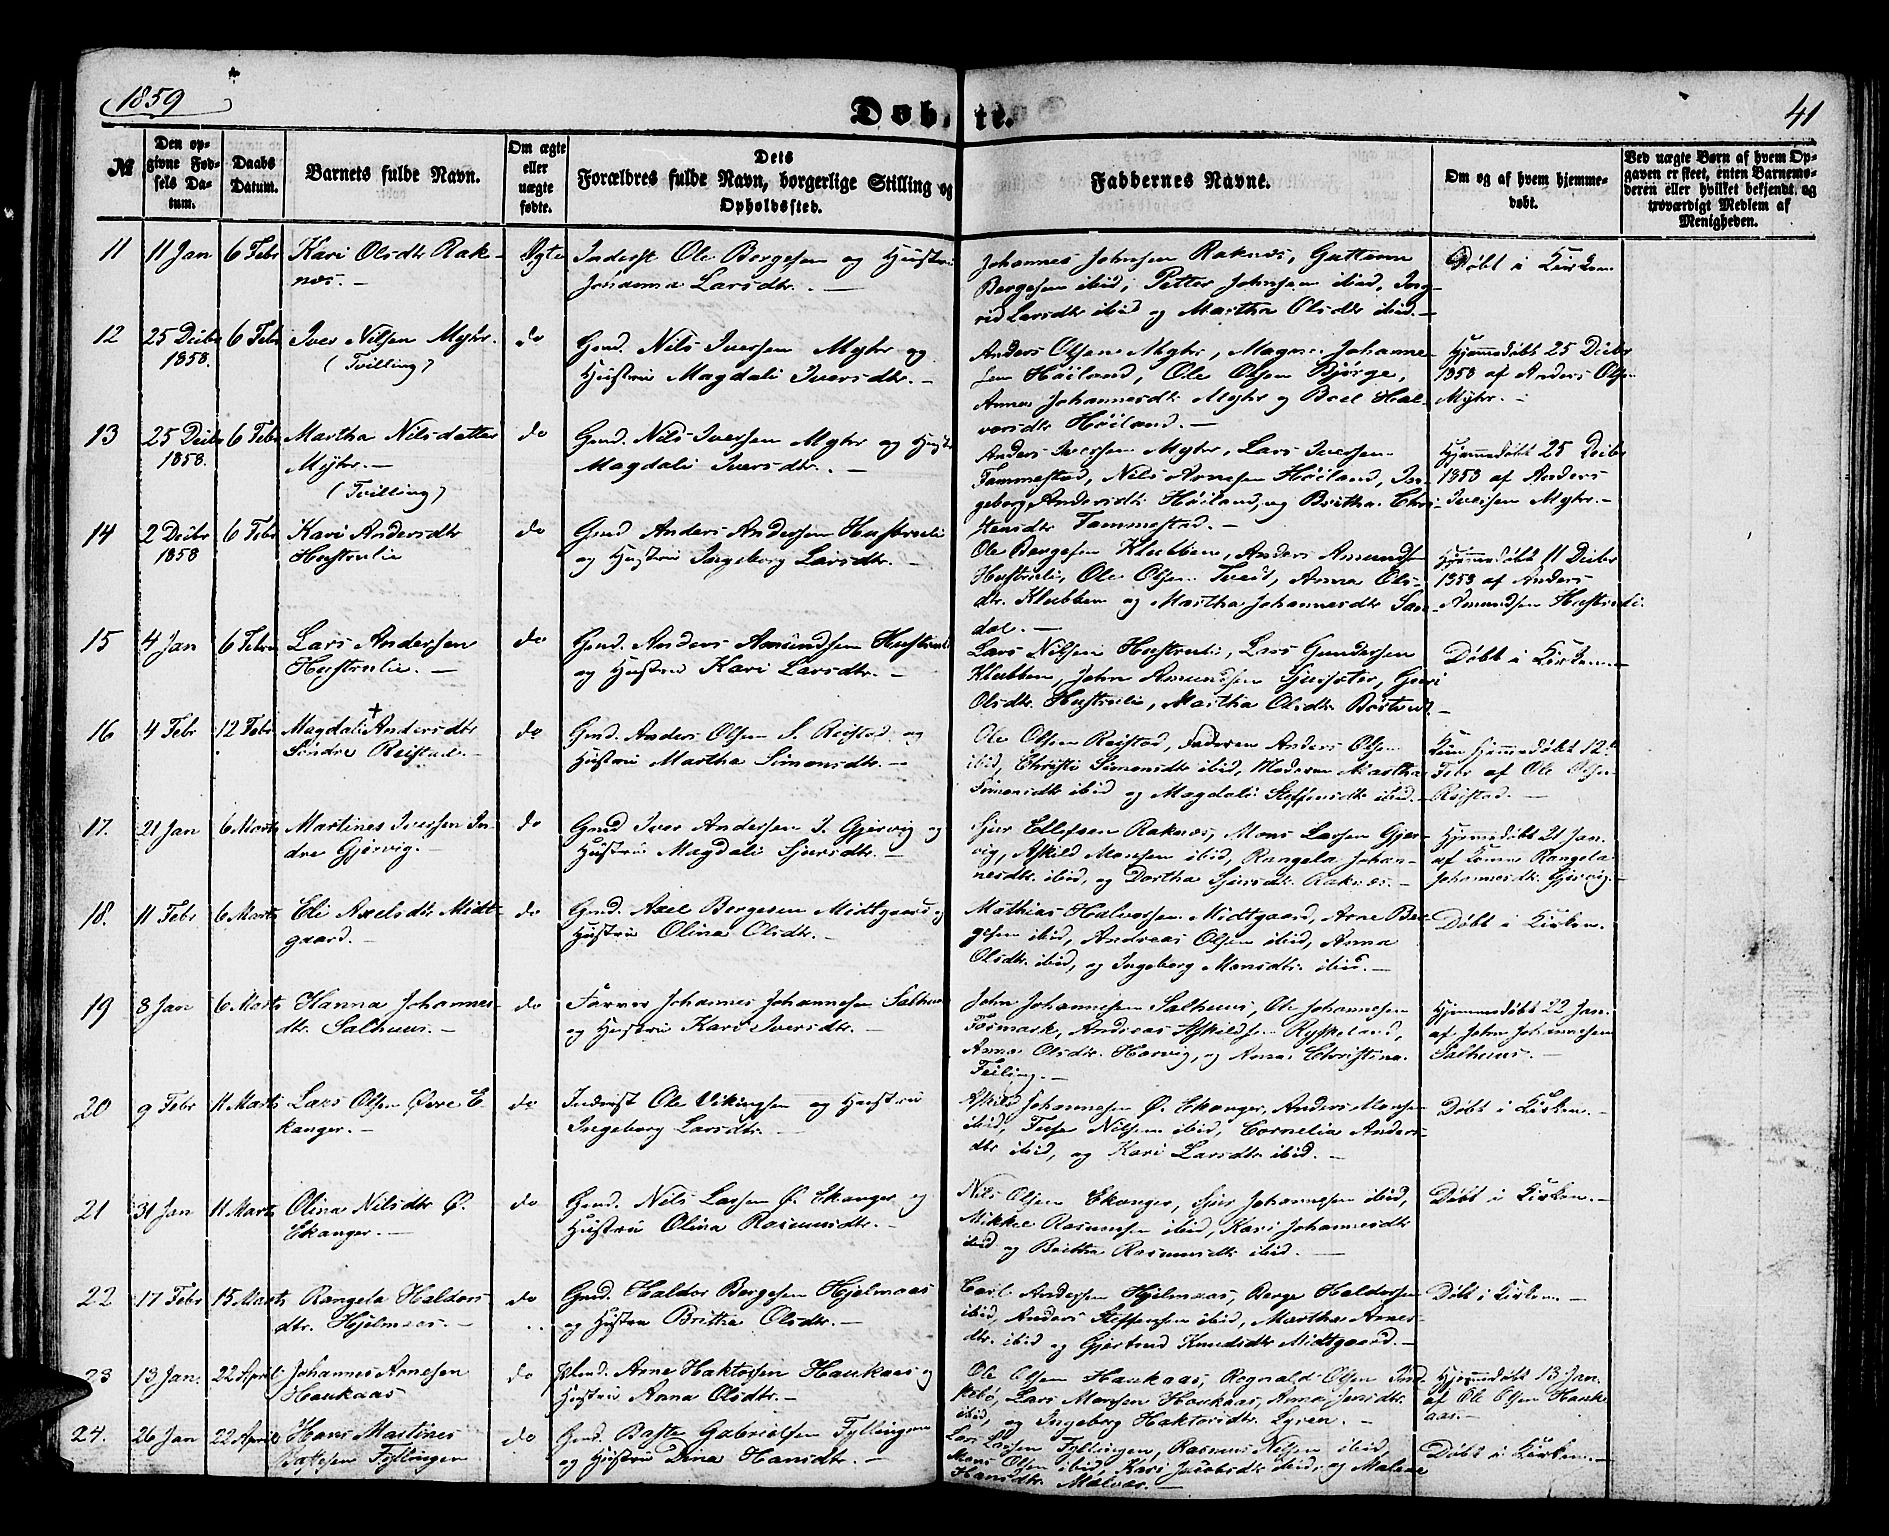 1859
Døbte.
41
№
Den op-
givne Fød-
sels Da-
tum.
Daabs
Datum.
Barnets fulde Navn.
Om ægte
eller
uægte
fødte.
Dets
Forældres fulde Navn, borgerlige Stilling og
Opholdssted.
Faddernes Navne.
Om og af hvem hjemme-
døbt.
Ved uægte Børn af hvem Op-
gaven er skeet, enten Barnemo-
deren eller hvilket bekjendt og
troværdigt Medlem af
Menigheden.
11
11 Jan
6 Febr
Kari Olsdtr Rak-
nes. -
Ægte
Inderst Ole Bergesen og Hustru
Johanna Larsdtr. -
Johannes Johnsen Raknes, Guttorm
Bergesen ibid, Petter Johnsen ibid, Ing-
rid Larsdtr ibid og Martha Olsdtr ibid. -
Døbt i Kirken
12
25 Decbr
1858.
6 Febr
Iver Nilsen Myhr.
(Tvilling)
do
Gmd. Nils Iversen Myhr og
Hustru Magdali Iversdtr. -
Anders Olsen Myhr, Magne Johanne-
sen Høiland, Ole Olsen Bjørge,
Anna Johannesdtr Myhr og Boel Hal-
vorsdtr Høiland. -
Hjemmedøbt 25 Decbr
1858 af Anders Olsen
Myhr. -
13
25 Decbr
1858.
6 Febr
Martha Nilsdatter
Myhr. -
(Tvilling)
do
Gmd. Nils Iversen Myhr og Hustru
Magdali Iversdtr. -
Anders Iversen Myhr, Lars Iversen
Tammestad, Nils Arnesen Høiland, In-
geborg Andersdtr Høiland, og Britha Chri-
stensdtr Tammestad. -
Hjemmedøbt 25 Decbr
1858 af Anders
Iversen Myhr. -
14
2 Decbr
1858
6 Febr
Kari Andersdtr
Hustrulie
do
Gmd Anders Andersen Hustruli
og Hustru Ingeborg Larsdtr. -
Ole Bergesen Klubben, Anders Amundsen
Hustruli, Ole Olsen Tveit, Anna Ols-
dtr. Klubben og Martha Johannesdtr San-
dal. -
Hjemmedøbt 11 Decbr
1858 af Anders
Amundsen Hustruli.
15
4 Jan
6 Febr
Lars Andersen
Hustrulie. -
do
Gmd. Anders Amundsen Hustruli
og Hustru Kari Larsdtr. -
Lars Nilsen Hustruli, Lars Gundersen
Klubben, John Amundsen
Olsdtr. Hustruli, Martha Olsdtr
Døbt i Kirken. -
16
4 Febr
12 Febr
Magdali + Andersdtr
Søndre Reistad. -
do
Gmd. Anders Olsen S. Reistad og
Hustru Martha Simonsdtr. -
Ole Olsen Reistad, Faderen Anders Olsen
ibid, Christi Simonsdtr ibid, Moderen Martha
Simonsdtr ibid og Magdali Steffensdtr ibid. -
Kun Hjemmedøbt 12.
Febr af Ole Olsen
Reistad. -
17.
21 Jan
6 Marts
Martines Iversen In-
dre Gjervig. -
do
Gmd Iver Andersen I. Gjervig og
Hustru Magdali Sjursdtr. -
Sjur Ellefsen Raknes, Mons Larsen Gjer-
vig, Askild Monsen ibid, Rangela Johan-
nesdtr. ibid, og Dortha Sjursdtr. Raknes. -
Hjemmedøbt 21 Jan.
af Konen Rangela
Johannesdtr. Gjervig. -
18.
11 Febr
6 Marts
Eli Axelsdtr Midt-
gaard. -
do
Gmd. Axel Bergesen Midtgaard og
Hustru Olina Olsdtr. -
Mathias Halvorsen Midtgaard, Arne Ber-
gesen ibid, Andreas Olsen ibid, Anna
Olsdtr. ibid, og Ingeborg Monsdtr. ibid. -
Døbt i Kirken.
19
8 Jan
6 Marts
Hanna Johannes-
dtr. Salhuus. -
do
Farver Johannes Johannesen Salhuus
og Hustru Kari Iversdtr. -
John Johannesen Salhuus, Ole Johannesen
Andreas Askildsen
Anna Olsdtr. og Anna Christina
Hjemmedøbt 22 Jan.
af John Johannesen
Salhuus. -
20
9 Febr
11 Marts
Lars Olsen Øvre E-
kanger. -
do
Inderst Ole Vikingsen og Hustru
Ingeborg Larsdtr. -
Askild Johannesen Ø. Ekanger, Anders Monsen
ibid, Nilsen ibid, Cornelia Anders-
dtr ibid, og Kari Larsdtr ibid. -
Døbt i Kirken. -
21
31 Jan
11 Marts
Olina Nilsdtr Ø.
Ekanger. -
do
Gmd. Nils Larsen Ø. Ekanger og
Hustru Olina Rasmusdtr. -
Nils Olsen Ekanger, Sjur Johannesen ibid,
Mikkel Rasmussen ibid, Kari Johannesdtr
ibid og Britha Rasmusdtr ibid. -
Døbt i Kirken. -
22
17 Febr
15 Marts
Rangela Haldors
dtr. Hjelmaas. -
do
Gmd. Haldor Bergesen Hjelmaas
og Hustru Britha Olsdtr. -
Carl Andersen Hjelmaas, Berge Haldorsen
ibid, Anders Steffensen ibid, Martha Arnes-
dtr. ibid og Gjertrud Knudsdtr Midtgaard. -
Døbt i Kirken. -
23
13 Jan.
22 April
Johannes Arnesen
Haukaas
do
Arne Haktorsen Haukaas og
Hustru Anna Olsdtr. -
Ole Olsen Haukaas, Regnald Olsen Ind-
rebø, Lars Monsen Haukaas, Anna
ibid, og Ingeborg Haktorsdtr. Lyren. -
Hjemmedøbt 13 Jan.
af Ole Olsen Hauk-
aas. -
24.
26 Jan
22 April
Hans Martines
Tyllingen
do
Gmd. Gabrielsen Fyllingen
og Hustru Dina Hansdtr. -
Lars Larsen Fyllingen, Rasmus Nilsen ibid,
Mons Olsen ibid, Kari Jacobsdtr ibid, og Malene
Hansdtr.
Døbt i Kirken. -